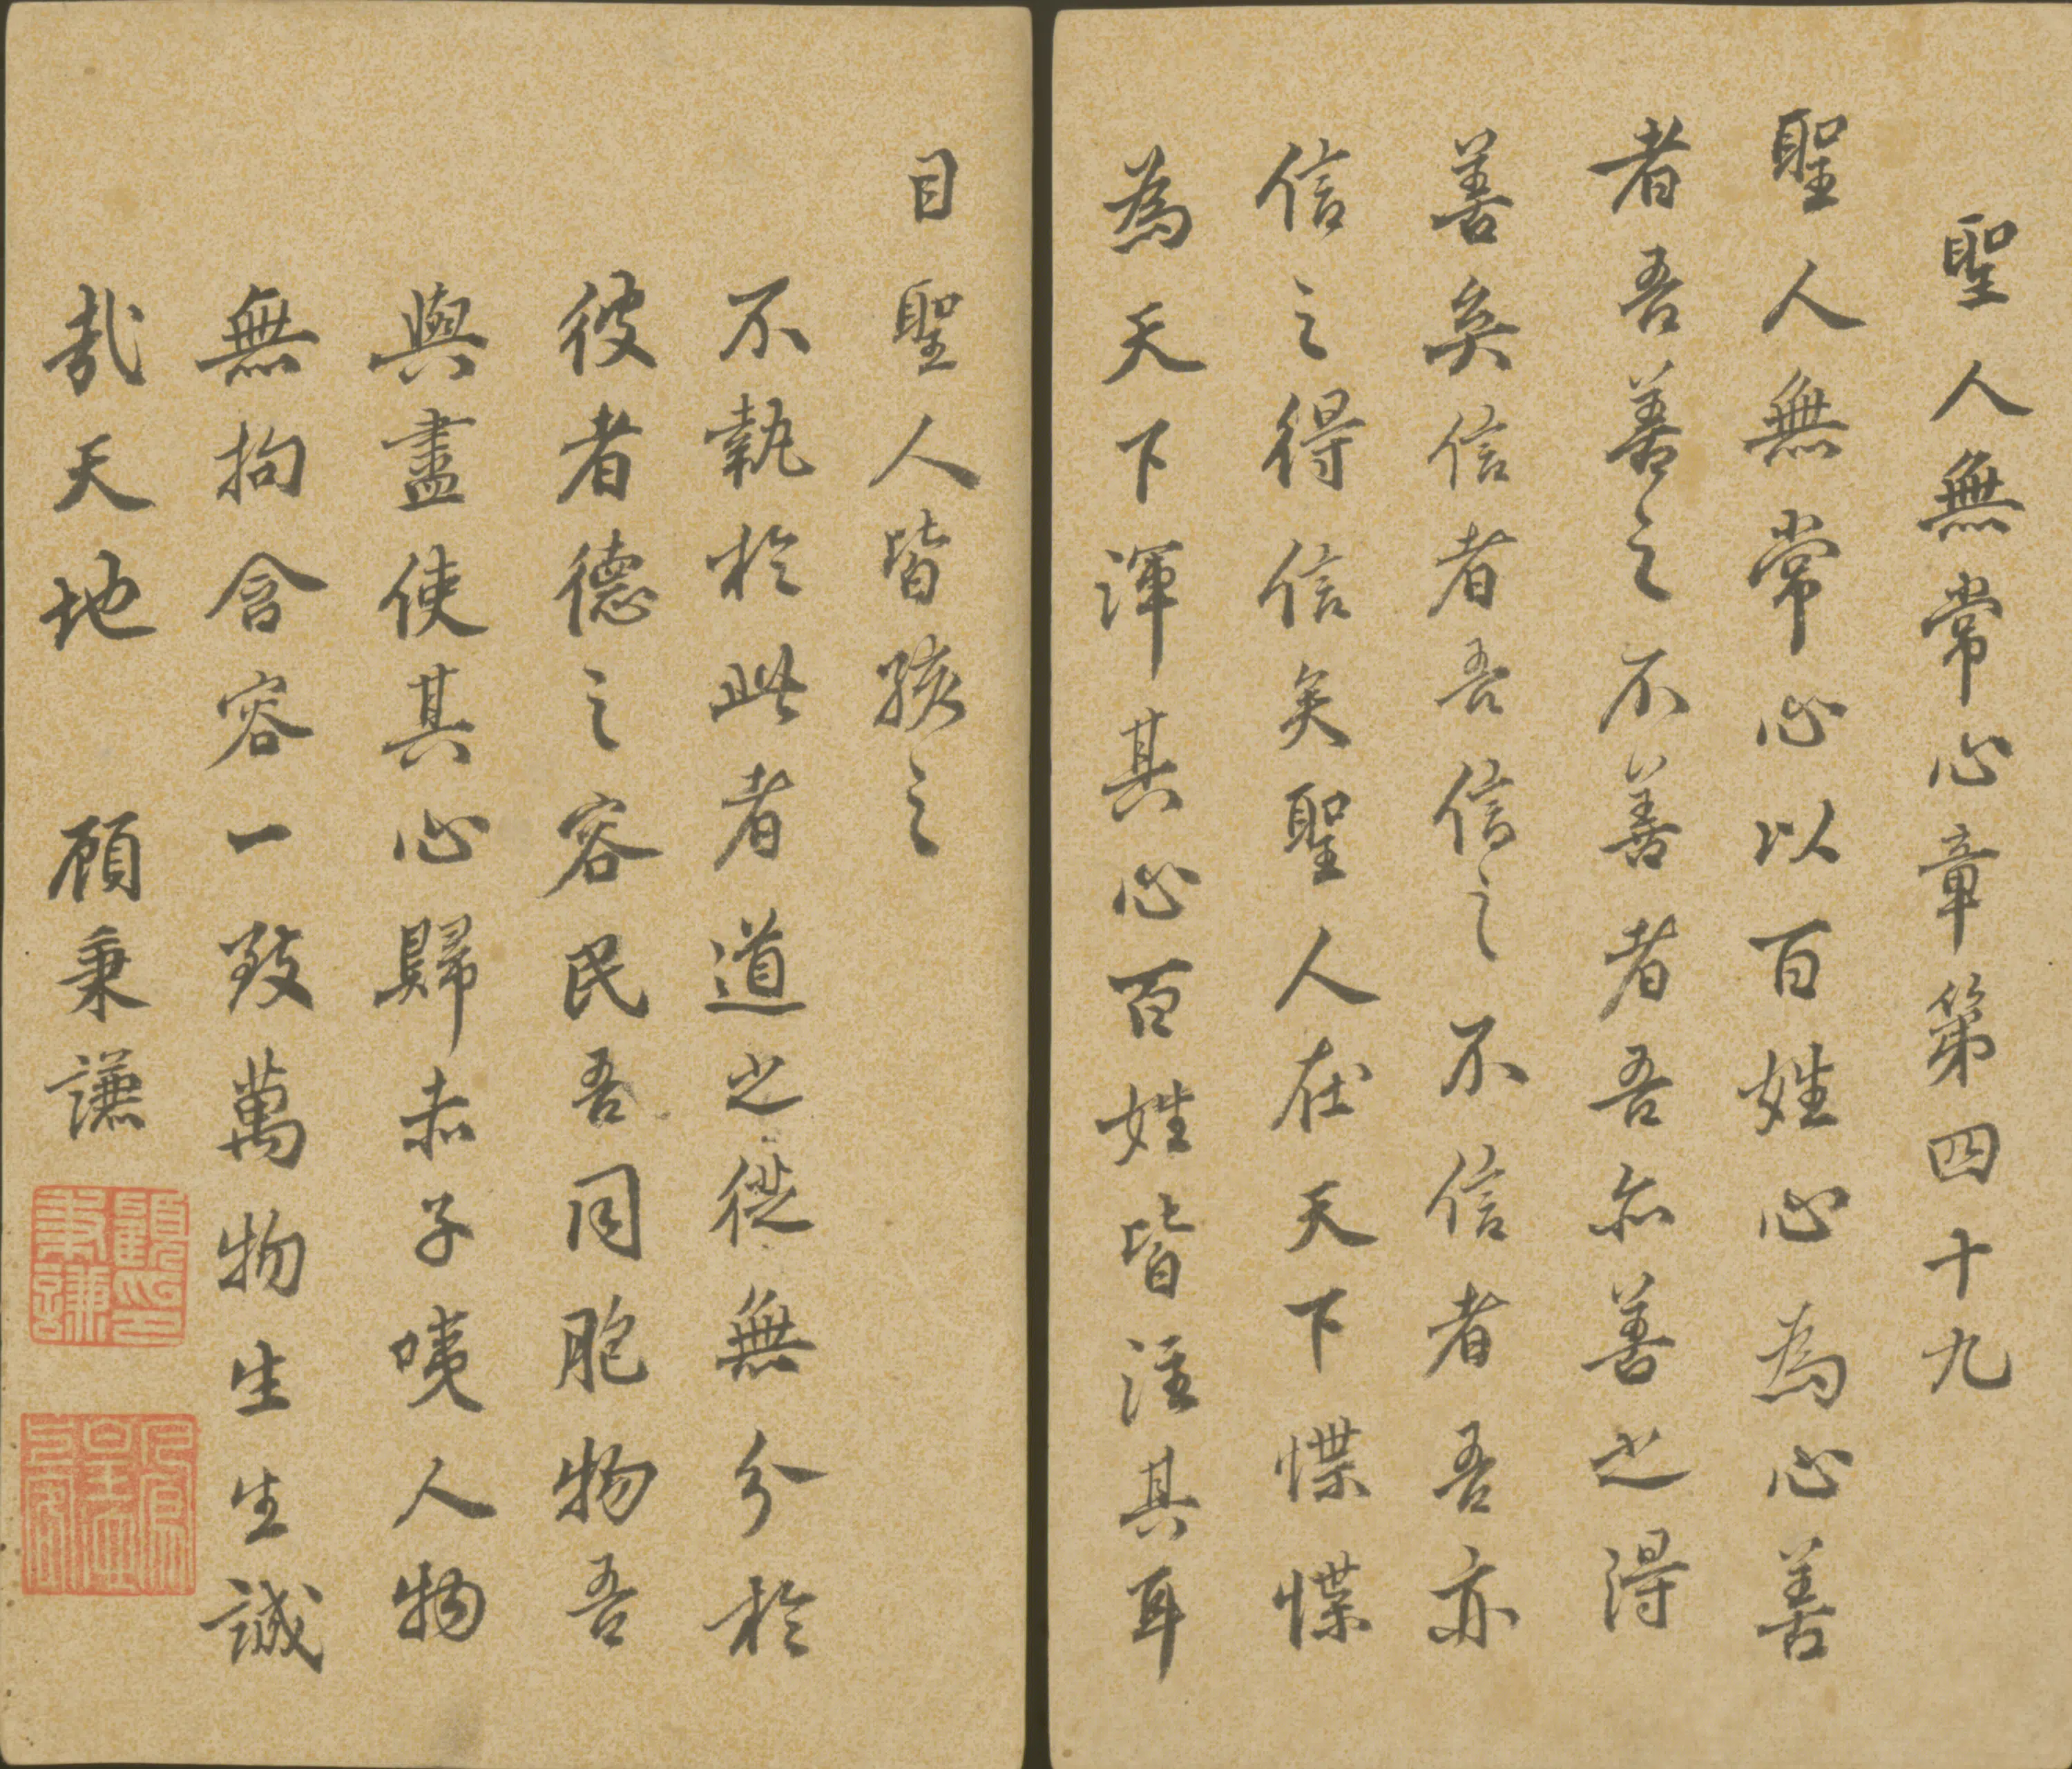 聖人無常心章第四十九
聖人無常心以百姓心為心善
者吾善之不善者吾亦善之得
善矣信者吾信之不信者吾亦
信之得信矣聖人在天下惵惵
為天下渾其心百姓皆注其耳
目聖人皆孩之
不執於此者道之從無分於
彼者德之容民吾同胞物吾
與盡使其心歸赤子咦人物
無拘含容一致萬物生生誠
哉天地 顧秉謙
顧印秉謙